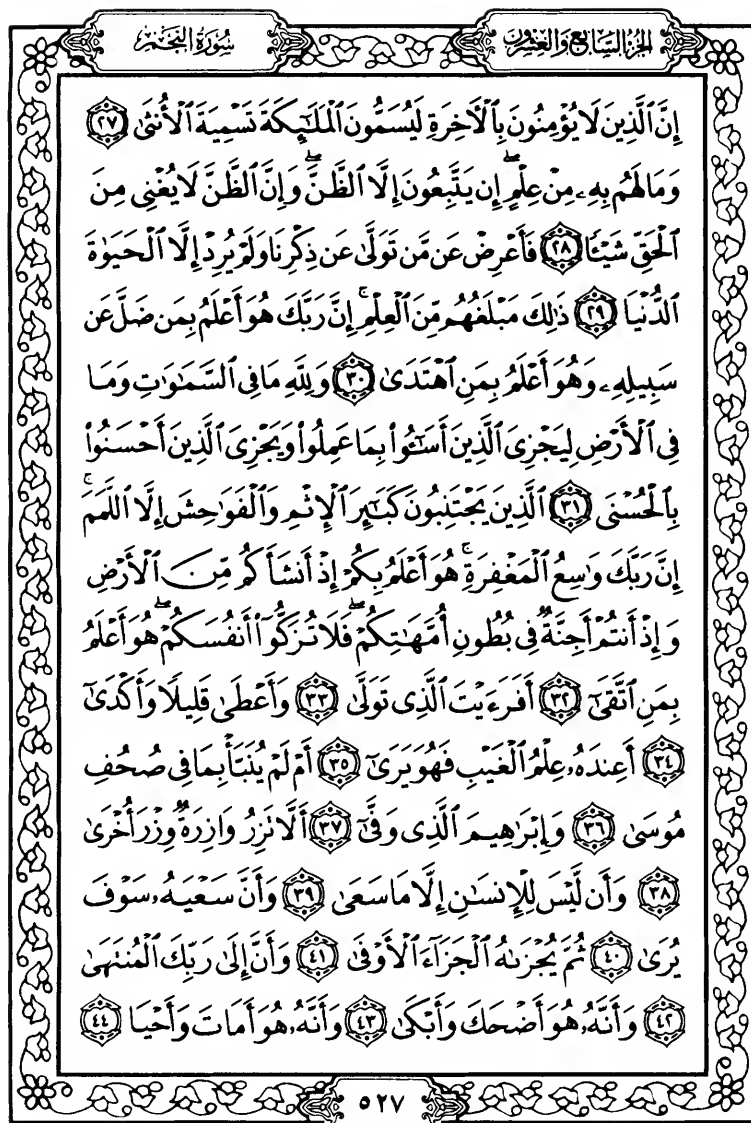 الجزء السابع والعشرون
سورة النجم
إِنَّ ٱلَّذِينَ لَا يُؤْمِنُونَ بِٱلْأَخِرَةِ لَيُسَمُّونَ ٱلْمَلَٰٓئِكَةَ تَسْمِيَةَ ٱلْأُنثَىٰ ٢٧
وَمَا لَهُم بِهِۦ مِنْ عِلْمٍۖ إِن يَتَّبِعُونَ إِلَّا ٱلظَّنَّۖ وَإِنَّ ٱلظَّنَّ لَا يُغْنِى مِنَ
ٱلْحَقِّ شَيْـًٔا ٢٨ فَأَعْرِضْ عَن مَّن تَوَلَّىٰ عَن ذِكْرِنَا وَلَمْ يُرِدْ إِلَّا ٱلْحَيَوٰةَ
ٱلدُّنْيَا ٢٩ ذَٰلِكَ مَبْلَغُهُم مِّنَ ٱلْعِلْمِۚ إِنَّ رَبَّكَ هُوَ أَعْلَمُ بِمَن ضَلَّ عَن
سَبِيلِهِۦ وَهُوَ أَعْلَمُ بِمَنِ ٱهْتَدَىٰ ٣٠ وَلِلَّهِ مَا فِى ٱلسَّمَٰوَٰتِ وَمَا
فِى ٱلْأَرْضِ لِيَجْزِىَ ٱلَّذِينَ أَسَٰٓـُٔوا۟ بِمَا عَمِلُوا۟ وَيَجْزِىَ ٱلَّذِينَ أَحْسَنُوا۟
بِٱلْحُسْنَى ٣١ ٱلَّذِينَ يَجْتَنِبُونَ كَبَٰٓئِرَ ٱلْإِثْمِ وَٱلْفَوَٰحِشَ إِلَّا ٱللَّمَمَۚ
إِنَّ رَبَّكَ وَٰسِعُ ٱلْمَغْفِرَةِۚ هُوَ أَعْلَمُ بِكُمْ إِذْ أَنشَأَكُم مِّنَ ٱلْأَرْضِ
وَإِذْ أَنتُمْ أَجِنَّةٌ فِى بُطُونِ أُمَّهَٰتِكُمْۖ فَلَا تُزَكُّوٓا۟ أَنفُسَكُمْۖ هُوَ أَعْلَمُ
بِمَنِ ٱتَّقَىٰٓ ٣٢ أَفَرَءَيْتَ ٱلَّذِى تَوَلَّىٰ ٣٣ وَأَعْطَىٰ قَلِيلًا وَأَكْدَىٰٓ
٣٤ أَعِندَهُۥ عِلْمُ ٱلْغَيْبِ فَهُوَ يَرَىٰٓ ٣٥ أَمْ لَمْ يُنَبَّأْ بِمَا فِى صُحُفِ
مُوسَىٰ ٣٦ وَإِبْرَٰهِيمَ ٱلَّذِى وَفَّىٰٓ ٣٧ أَلَّا تَزِرُ وَازِرَةٌ وِزْرَ أُخْرَىٰ
٣٨ وَأَن لَّيْسَ لِلْإِنسَٰنِ إِلَّا مَا سَعَىٰ ٣٩ وَأَنَّ سَعْيَهُۥ سَوْفَ
يُرَىٰ ٤٠ ثُمَّ يُجْزَىٰهُ ٱلْجَزَآءَ ٱلْأَوْفَىٰ ٤١ وَأَنَّ إِلَىٰ رَبِّكَ ٱلْمُنتَهَىٰ
٤٢ وَأَنَّهُۥ هُوَ أَضْحَكَ وَأَبْكَىٰ ٤٣ وَأَنَّهُۥ هُوَ أَمَاتَ وَأَحْيَا ٤٤
٥٢٧